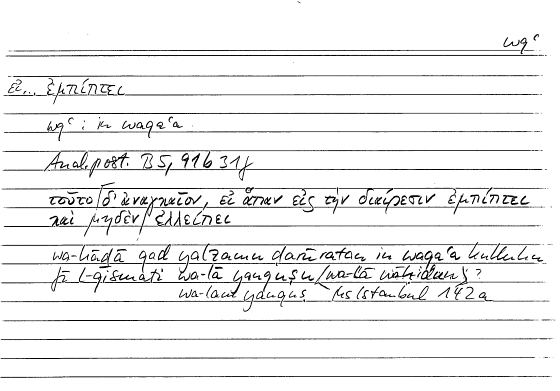 wqʿ
εἰ... ἐμπίπτει
wqʿ : in waqaʿa
Anal. post. B 5, 91b 31f
τοῦτο / δ' ἀναγκαῖον, εἰ ἅπαν εἰς τὴν διαίρεσιν ἐμπίπτει
καὶ μηδὲν / ἐλλείπει
wa-hāḏā qad yalzamu ḍarūratan in waqaʿa kulluhu
fī l-qismati wa-lā yanquṣu / wa-lā wāhidun } ?
wa-lam yanquṣ Ms Istanbul 142a